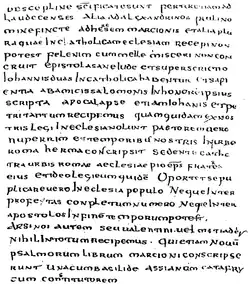 descepline scificate sunt fertur etiam ad
laudecenses alia ad alexandrinos pauli no
mine fincte ad heresem marcionis et alia plu
ra quae in catholicam eclesiam recepi non
potest fel enim cum melle misceri non con
cruit epistola sane iude et superscrictio
iohannis duas in catholica habentur et sapi
entia ab amicis salomonis in honore ipsius
scripta apocalapse etiam iohanis et pe
tri tantum recipemus quam quidam ex nos
tris legi in eclesia nolunt pastorem uero
nuperrim et temporibus nostris in urbe
roma herma conscripsit sedente cathe
tra urbis romae aeclesiae pio eps frater
eius et ideo legi eum quide oportet se pu
plicare uero in eclesia populo neque inter
profetas completum numero neque inter
apostolos in fine temporum potest
arsinoi autem seu ualentini uel mitiadis
nihil in totum recipemus qui etiam nouu
psalmorum librum marcioni conscripse
runt una cum basilide assianum catafry
cum contitutorem